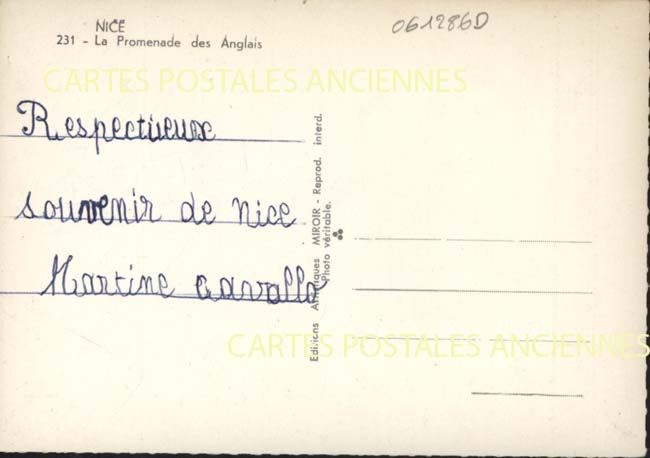 NICE
231 - La Promenade des Anglais
061286D
CARTES POSTALES ANCIENNES
Respectueux
souvenir de Nice
Martine cavallo
Editions Artistiques MIROIR - Reprod. interd.
Photo véritable.
CARTES POSTALES ANCIENNES